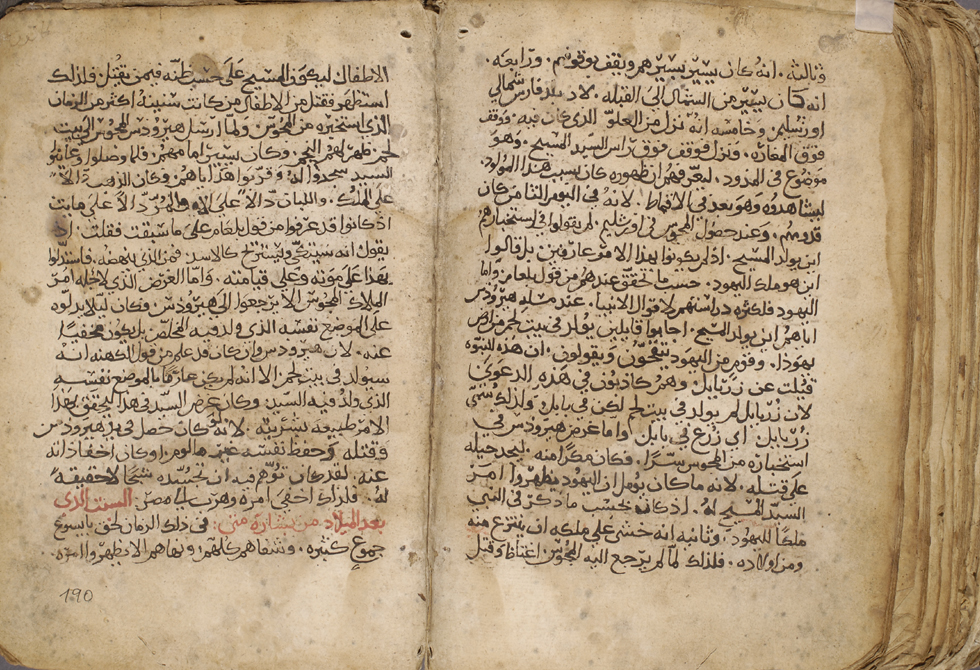 وثالثة. انه كان يسير بسيرهم ويقف بوقوفهم. ورابعه.
انه كان يسير من الشمال الى القبله. لان بلد فارس شمالي
اورشليم وخامسه انه نزل من العلو الذي كان فيه. ووقف
فوق المغاره. ونزل فوقف فوق راس السيد المسيح. وهو
موضوع في المدود. ليعرفهم ان ظهوره كان بسبب هذا المولود.
ليشاهدوه وهو بعد في الاقماط. لانه في اليوم الثامن كان
قدومهم. وعند حصول المجوس في اورشليم. لم يقولوا في استخبارهم
اين يولد المسيح. اذ لم يكونوا بهذا الامر عارفين بل قالوا
اين هو ملك اليهود. حسب ما تحقق عندهم من قول بلعام. واما
اليهود فلكثره دراستهم لاقوال الانبيا. عند مسله هيرودس
اياهم اين يولد المسيح. اجابوا قايلين يولد في بيت لحم من ارض
يهودا. وقوم من اليهود يتقحون ويقولون. ان هذه النبوه
قيلت عن زربابل. وهم كاذبون في هذه الدعوى
لان زربابل لم يولد في بيت لحم لكن في بابل ولذلك سمي
زربابل اي زرع في بابل واما غرض هيرودس في
استخباره من المجوس سرا. فكان مكرا منه. ليجد حيله
على قتله. لانه ما كان يومل ان اليهود يظهروا امر
السيد المسيح له. اذ كان بحسب ما ذكر في النبي
ملكا لليهود. وثانيه انه خشي على ملكه ان ينتزع منه
ومن اولاده. فلذلك لما لم يرجع اليه المجوس. اغتاظ وقتل
الاطفال ليكون المسيح على حسب ظنه فيمن يقتل. فلذلك
استظهر فقتل من الاطفال من كانت سنينه اكثر من الزمان
الذي استخبره من المجوس ولما ارسل هيرودس المجوس الى بيت
لحم. ظهر لهم النجم. وكان يسير امامهم. فلما وصلوا وعاينوا
السيد سجدوا له. وقربوا هداياهم. وكان الذهب دالا
على الملك. واللبان دالا على الاله والمر دالا على مايت
اذ كانوا قد عرفوا من قول بلعام على ما سبقت فقلت. اذ
يقول انه سيتكي ويستريح كالاسد. فمن الذي ينهضه. فاستدلوا
بهذا على موته وعلى قيامته. واما الغرض الذي لاجله امر
الملاك المجوس الا يرجعوا الى هيرودس. فكان ليلا يدلوه
على الموضع نفسه الذي ولد فيه المخلص بل يكون مخفيا
عنه. لان هيرودس وان كان قد علم من قول الكهنه انه
سيولد في بيت لحم الا انه لم يكن عارفا بالموضع نفسه
الذي ولد فيه السيد. وكان غرض السيد في هذا ليحقق بهذا
الامر طبيعه بشريته. لانه لو كان حصل في يد هيرودس
وقتله وحفظ نفسه غير مالوم. او كان اخفا ذاته
عنه. لقد كان توهم فيه ان تجسده شبحا لا حقيقه
له. فلذلك اخفي امره وهرب الى مصر. السبت الذي
بعد الميلاد من بشارة متى. في ذلك الزمان لحق بايسوع
جموع كثيره. وشفاهم كلهم. ونهاهم الا يظهروا امره.
190